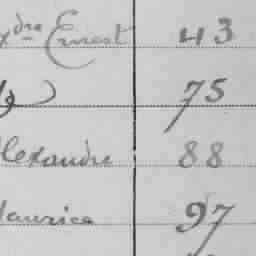 xdre Ernest 43
75
lexandre 88
aurice 97